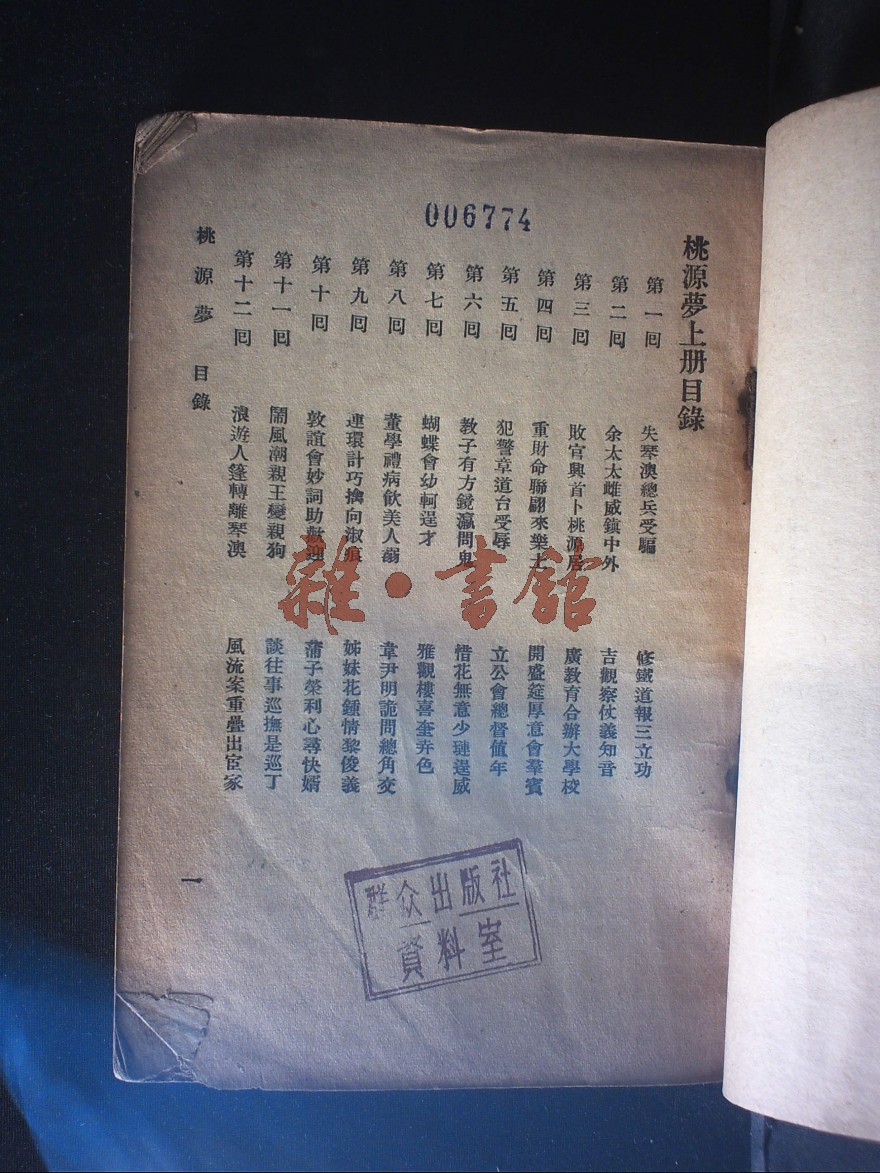 006774
桃源夢上册目錄
第一囘 失琴澳總兵受騙 修鐵道報三立功
第二囘 余太太雌威鎮中外 吉觀察仗義知音
第三囘 敗官興首卜桃源居 廣教育合辦大學校
第四囘 重財命聯翩來樂土 開盛筵厚意會羣賓
第五囘 犯警章道台受辱 立公會總督值年
第六囘 教子有方鏡瀛問鬼 惜花無意少璉逞威
第七囘 蝴蝶會幼軻逞才 雅觀樓喜奎弄色
第八囘 董學禮病飲美人溺 韋尹明詭問總角交
第九囘 連環計巧擒向淑痕 姊妹花鍾情黎俊義
第十囘 敦誼會妙詞助歡迎 蒲子榮利心尋快婿
第十一囘 鬧風潮親王變親狗 談往事巡撫是巡丁
第十二囘 浪遊人篷轉離琴澳 風流案重疊出宦家
桃源夢 目錄
一
雜·書館
群众出版社
資料室